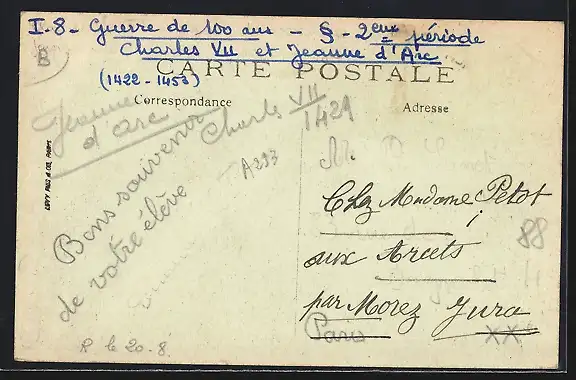 I-8- Guerre de 100 ans - § - 2eme période
Charles VII et Jeanne d'Arc
(1422 - 1453)
B
CARTE POSTALE
Correspondance
Adresse
Jeanne
d'arc
Charles VII
1429
A293
LEVY FILS & CIE, PARIS
Bons souvenir
de votre élève
Chez Madame Petot
aux Arcets
par Morez Jura
Paris
88
XX
R le 20-8